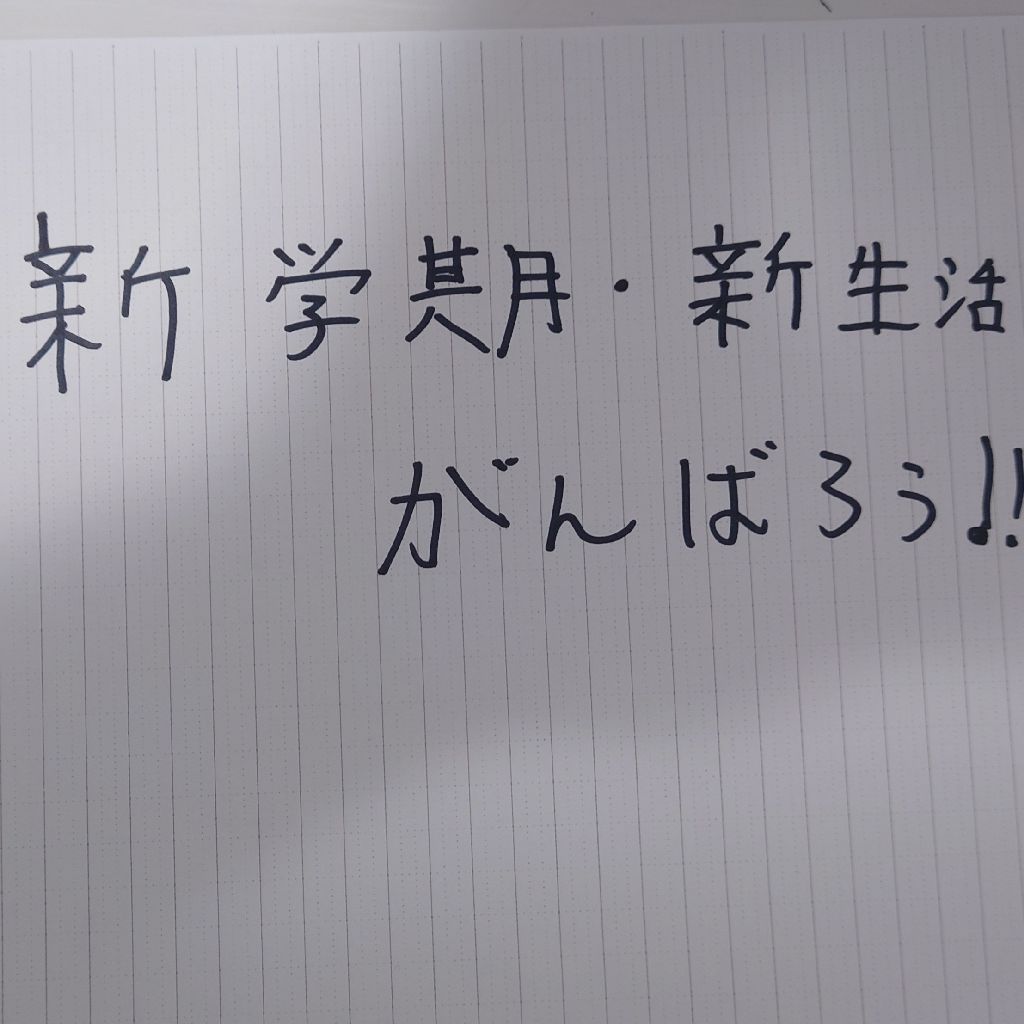 新学期・新生活
がんばろう!!